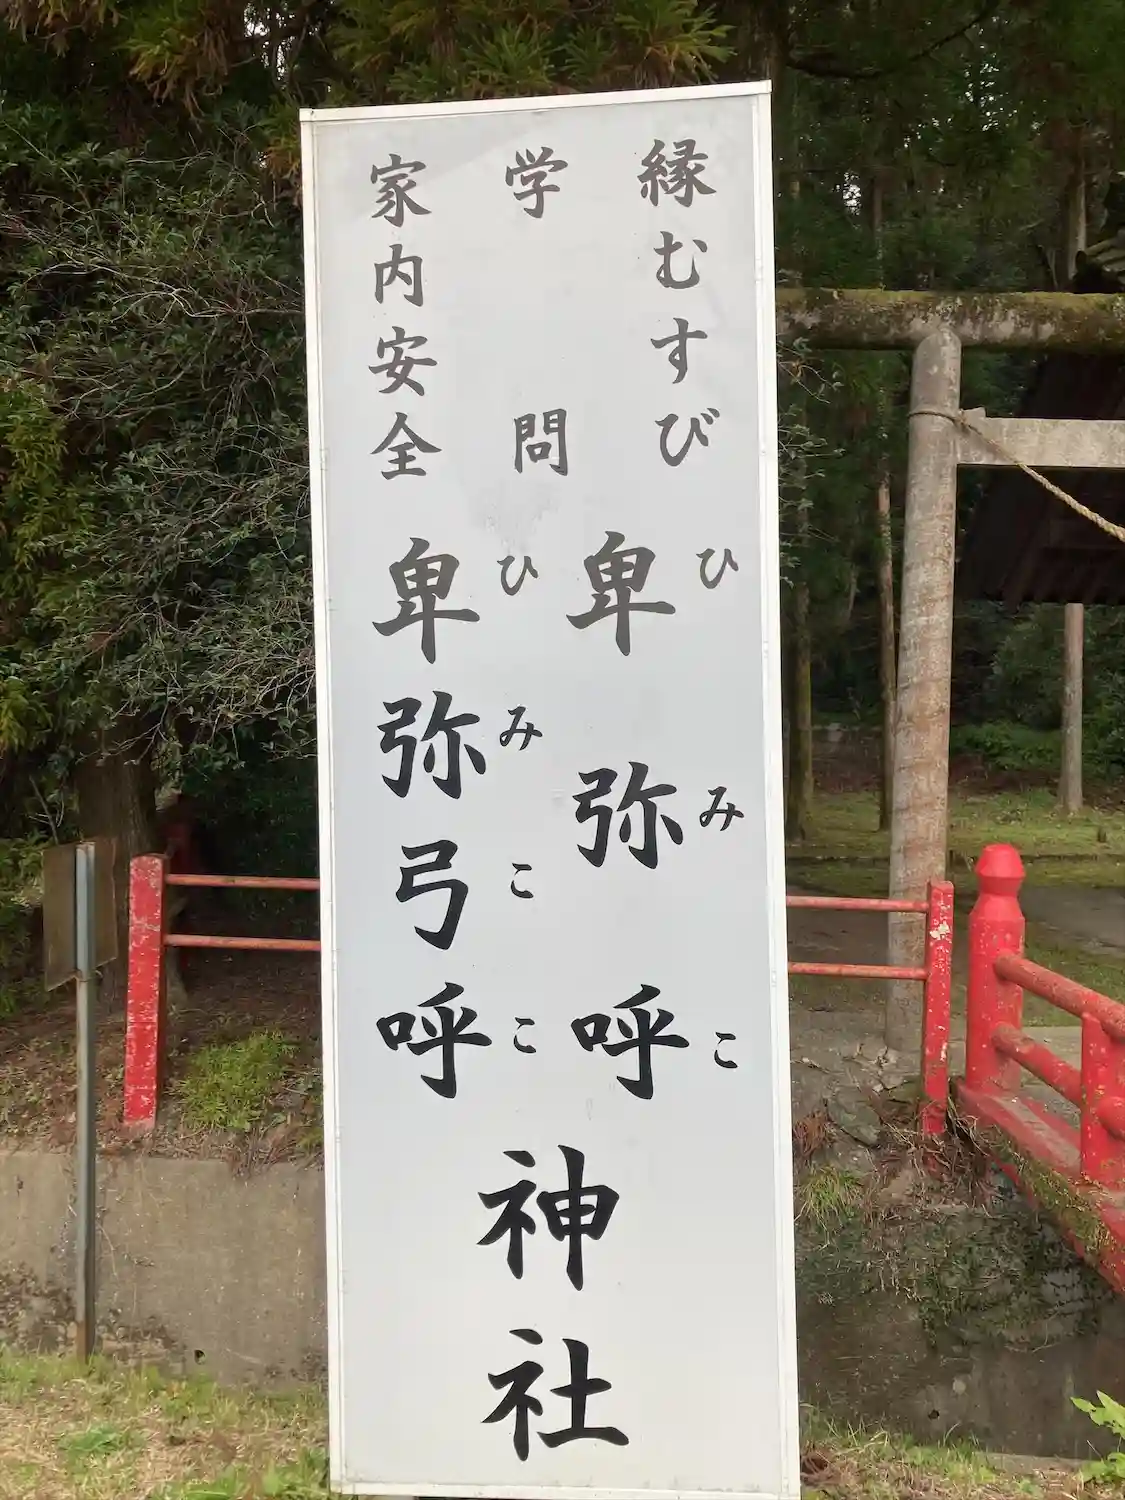 縁むすび
学問
家内安全
卑弥呼
ひみこ
卑弥弓呼
ひみここ
神社